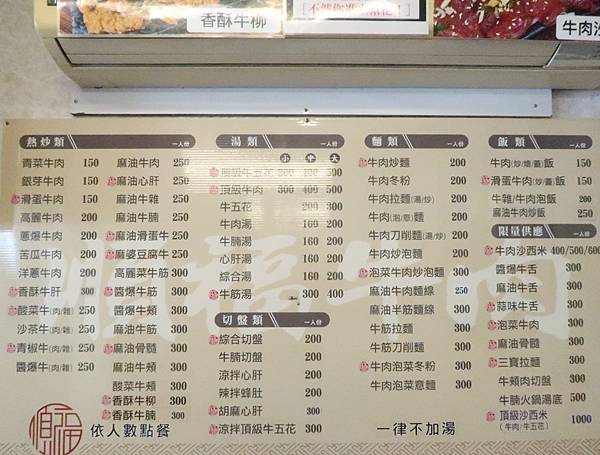 香酥牛柳
牛肉沙
熱炒類 一人份
青菜牛肉 150
銀芽牛肉 150
滑蛋牛肉 150
高麗牛肉 200
蔥爆牛肉 200
苦瓜牛肉 200
洋蔥牛肉 200
香酥牛肝 300
酸菜牛(肉/雜) 250
沙茶牛(肉/雜) 250
青椒牛(肉/雜) 250
醬爆牛(肉/雜) 250
麻油牛肉 250
麻油心肝 250
麻油牛雜 250
麻油牛腩 250
麻油滑蛋牛 250
麻婆豆腐牛 250
高麗菜牛筋 300
醬爆牛筋 300
醬爆牛頰 300
麻油牛筋 300
麻油骨髓 300
麻油牛頰 300
酸菜牛頰 300
香酥牛柳 300
香酥牛腩 300
湯類 一人份
小 中 大
頂級牛五花 300 400 500
頂級牛肉 300 400 500
牛五花 200 300
牛肉湯 160 200
牛腩湯 160 200
心肝湯 160 200
綜合湯 160 200
牛筋湯 300 400
切盤類 一人份
綜合切盤 200
牛腩切盤 200
涼拌心肝 200
辣拌蜂肚 200
胡麻心肝 300
涼拌頂級牛五花 300
麵類 一人份
牛肉炒麵 200
牛肉冬粉 200
牛肉拉麵(湯/炒) 200
牛肉(泡/意)麵 200
牛肉刀削麵(湯/炒) 200
牛肉炒泡麵 200
泡菜牛肉炒泡麵 200
麻油牛肉麵線 250
麻油半筋麵線 300
牛筋拉麵 300
牛筋刀削麵 300
牛肉泡菜冬粉 300
牛肉泡菜意麵 300
飯類 一人份
牛肉(炒/燴/蓋)飯 150
滑蛋牛肉(燴/蓋)飯 150
牛雜/牛肉泡飯 200
麻油牛肉炒飯 250
限量供應 一人份
牛肉沙西米 400/500/600
醬爆牛舌 300
麻油牛舌 300
蒜味牛舌 300
泡菜牛肉 300
麻油骨髓 300
三寶拉麵 300
牛頰肉切盤 300
牛腩火鍋湯底 500
頂級沙西米 1000
(牛肉/牛五花)
依人數點餐
一律不加湯